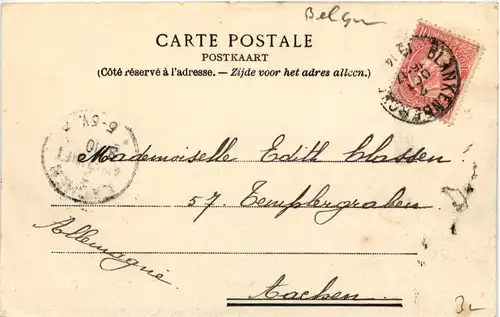 CARTE POSTALE
POSTKAART
(Côté réservé à l'adresse. — Zijde voor het adres alleen.)
BLANKENBERGHE
Mademoiselle Edith Classen
57 Templergraben
Allemagne
Aachen